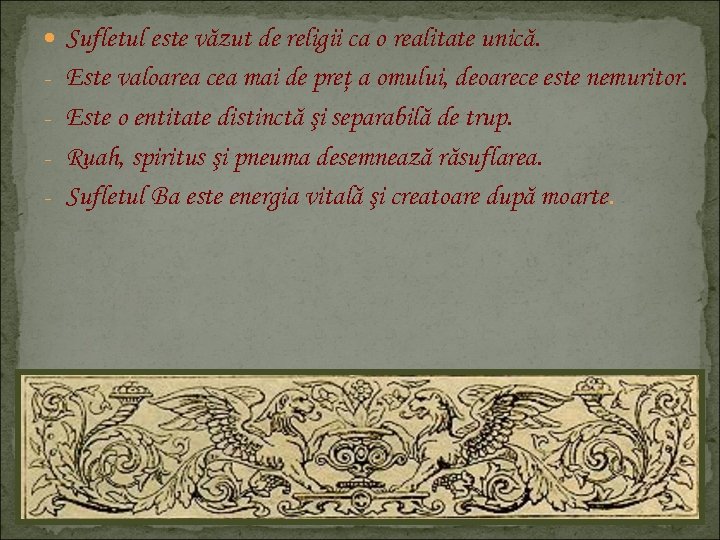 • Sufletul este văzut de religii ca o realitate unică.
- Este valoarea cea mai de preţ a omului, deoarece este nemuritor.
- Este o entitate distinctă şi separabilă de trup.
- Ruah, spiritus şi pneuma desemnează răsuflarea.
- Sufletul Ba este energia vitală şi creatoare după moarte.